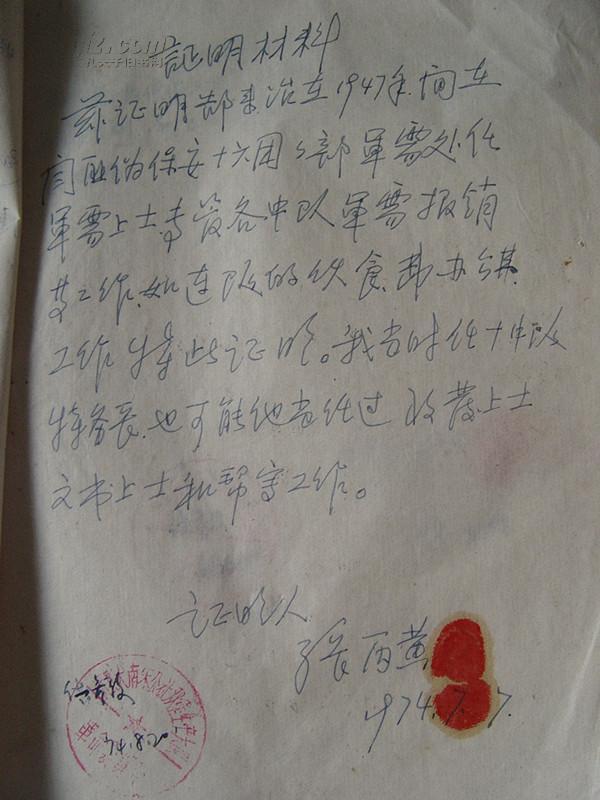 证明材料
兹证明郜来治在1947年间在
阎匪伪保安十六团团部军需处任
军需上士专管各中队军需报销
等工作如连队的伙食费办公费
工作特此证明。我当时任十中队
特务长.也可能他当任过收发上士
文书上士和帮写工作。
证明人
张丙黄
1974.7.7.
74.8.20